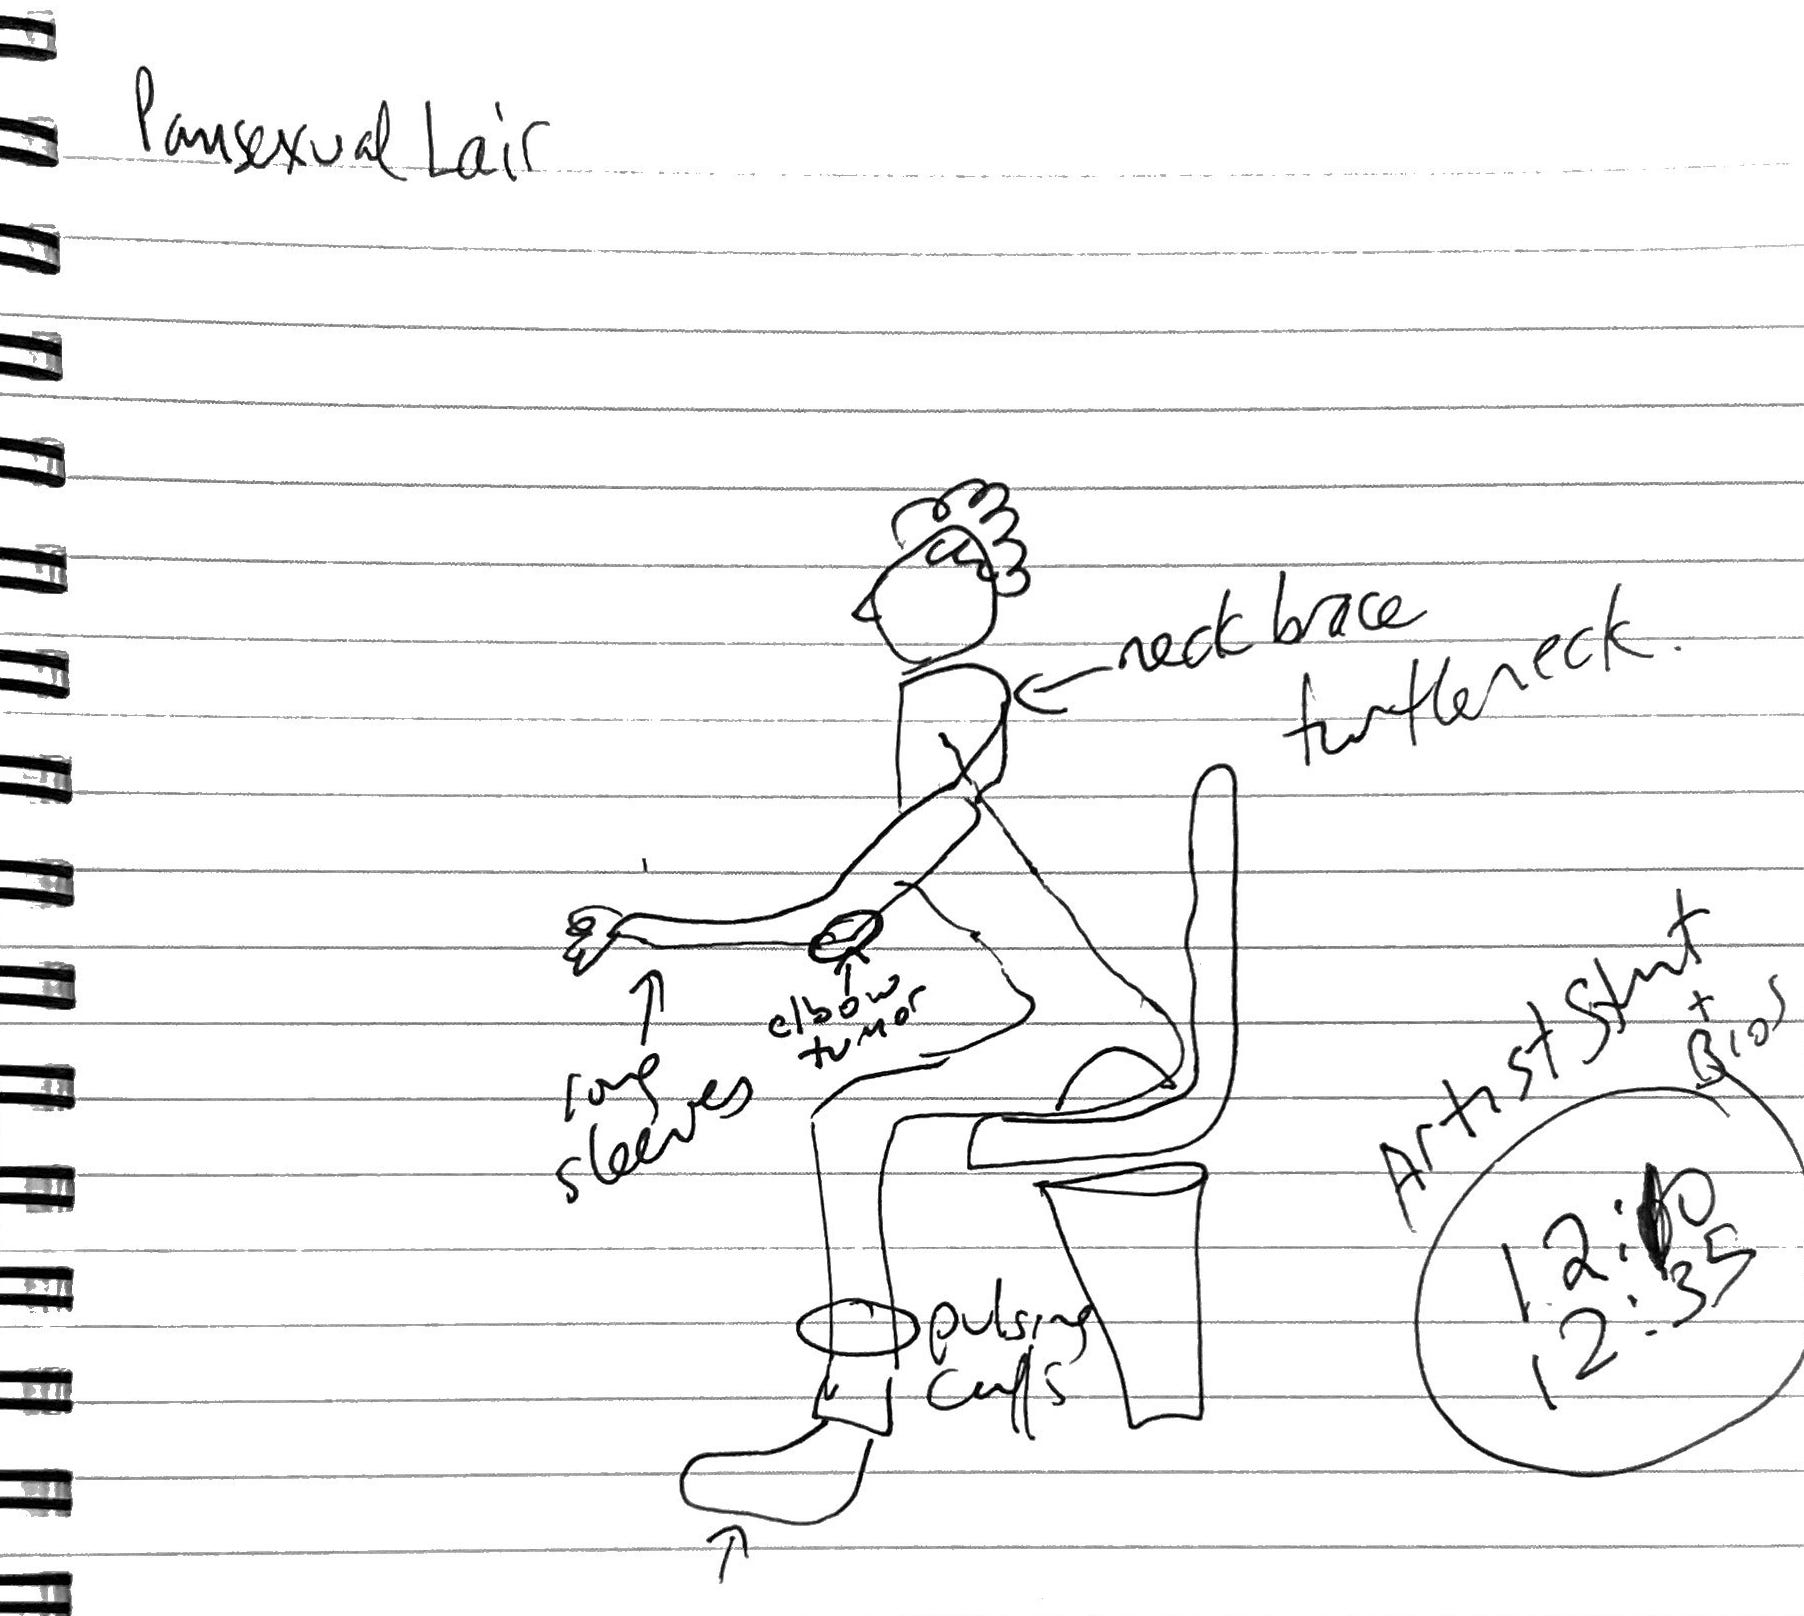 Pansexual Lair
neck brace
turtleneck.
elbow
tumor
long
sleeves
Artist Stmt
+
Bios
12:10
12:35
pulsing
cuffs